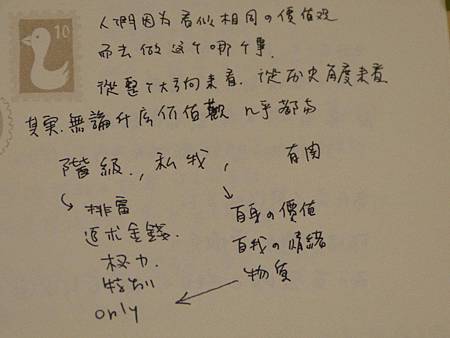 10
人們因为看似相同の價值观
而去做这个哪个事.
從整个大方向来看. 從历史角度来看
其実. 無論什庅価值觀 几乎都与
階級., 私我, 有関
排富 自身の價值
追求金錢. 自我の情緒
权力. 物質
特別
only